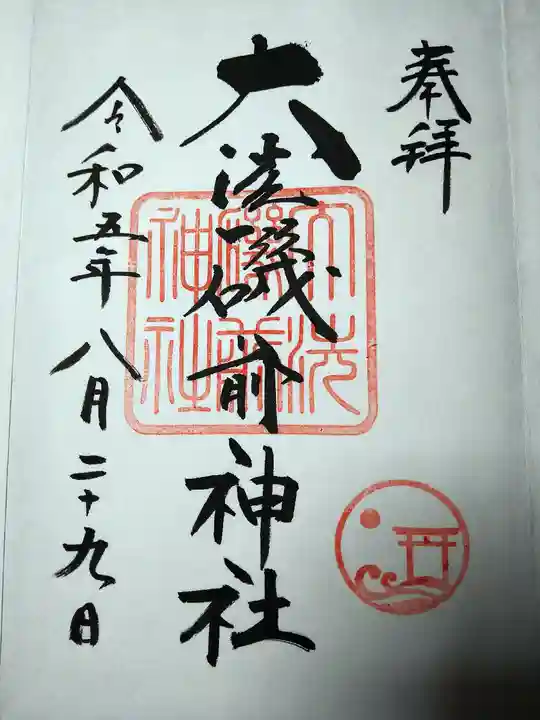 奉拝
大洗磯前神社
大洗
磯前
神社
令和五年八月二十九日